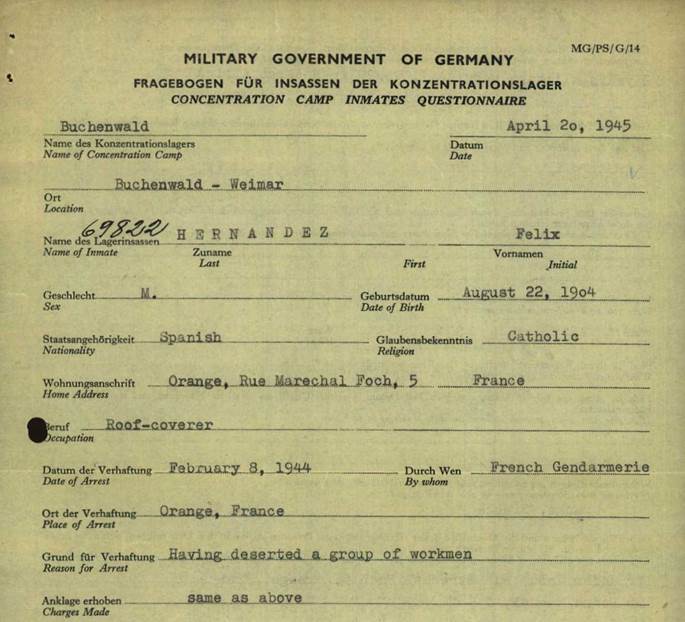 MG/PS/G/14
MILITARY GOVERNMENT OF GERMANY
FRAGEBOGEN FÜR INSASSEN DER KONZENTRATIONSLAGER
CONCENTRATION CAMP INMATES QUESTIONNAIRE
Buchenwald April 2o, 1945
Name des Konzentrationslagers Datum
Name of Concentration Camp Date
Buchenwald - Weimar
Ort
Location
69822 HERNANDEZ Felix
Name des Lagerinsassen Zuname Vornamen
Name of Inmate Last First Initial
Geschlecht M. Geburtsdatum August 22, 19o4
Sex Date of Birth
Staatsangehörigkeit Spanish Glaubensbekenntnis Catholic
Nationality Religion
Wohnungsanschrift Orange, Rue Marechal Foch, 5 France
Home Address
Beruf Roof-coverer
Occupation
Datum der Verhaftung February 8, 1944 Durch Wen French Gendarmerie
Date of Arrest By whom
Ort der Verhaftung Orange, France
Place of Arrest
Grund für Verhaftung Having deserted a group of workmen
Reason for Arrest
Anklage erhoben same as above
Charges Made